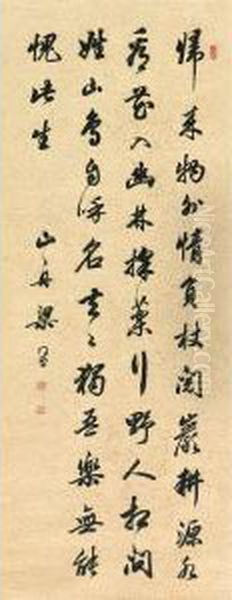 歸来物外情負杖閲巖耕源水
看花入幽林採藥行野人相問
姓山鳥自呼名去去獨吾樂無能
愧此生
山舟梁同書